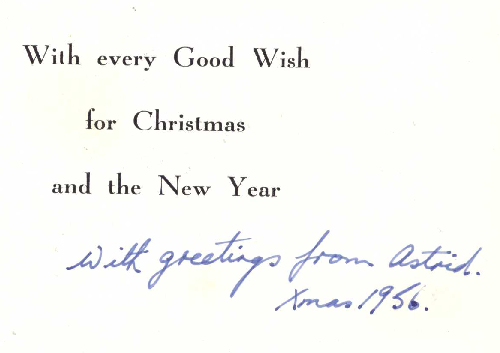 With every Good Wish
for Christmas
and the New Year
With greetings from Astrid.
Xmas 1956.